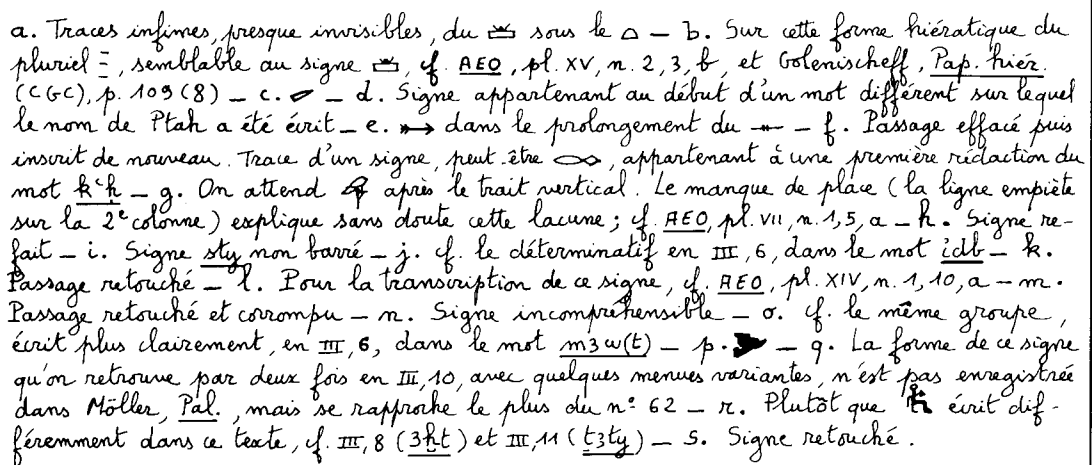 a. Traces infimes, presque invisibles, du sous le – b. Sur cette forme hiératique du
pluriel, semblable au signe, cf. AEO, pl. XV, n. 2, 3, b, et Golenischeff, Pap. hiér.
(CGC), p. 109 (8) – c. – d. Signe appartenant au début d'un mot différent sur lequel
le nom de Ptah a été écrit – e. dans le prolongement du – f. Passage effacé puis
inscrit de nouveau. Trace d'un signe, peut-être, appartenant à une première rédaction du
mot ḳꜥḥ – g. On attend après le trait vertical. Le manque de place (la ligne empiète
sur la 2e colonne) explique sans doute cette lacune; cf. AEO, pl. VII, n. 1, 5, a – h. Signe re-
fait – i. Signe sty non barré – j. cf. le déterminatif en III, 6, dans le mot idb – k.
Passage retouché – l. Pour la transcription de ce signe, cf. AEO, pl. XIV, n. 1, 10, a – m.
Passage retouché et corrompu – n. Signe incompréhensible – o. cf. le même groupe,
écrit plus clairement, en III, 6, dans le mot m3w(t) – p. – q. La forme de ce signe
qu'on retrouve par deux fois en III, 10, avec quelques menues variantes, n'est pas enregistrée
dans Möller, Pal., mais se rapproche le plus du n° 62 – r. Plutôt que écrit dif-
féremment dans ce texte, cf. III, 8 (3ḫt) et III, 11 (t3ty) – s. Signe retouché.